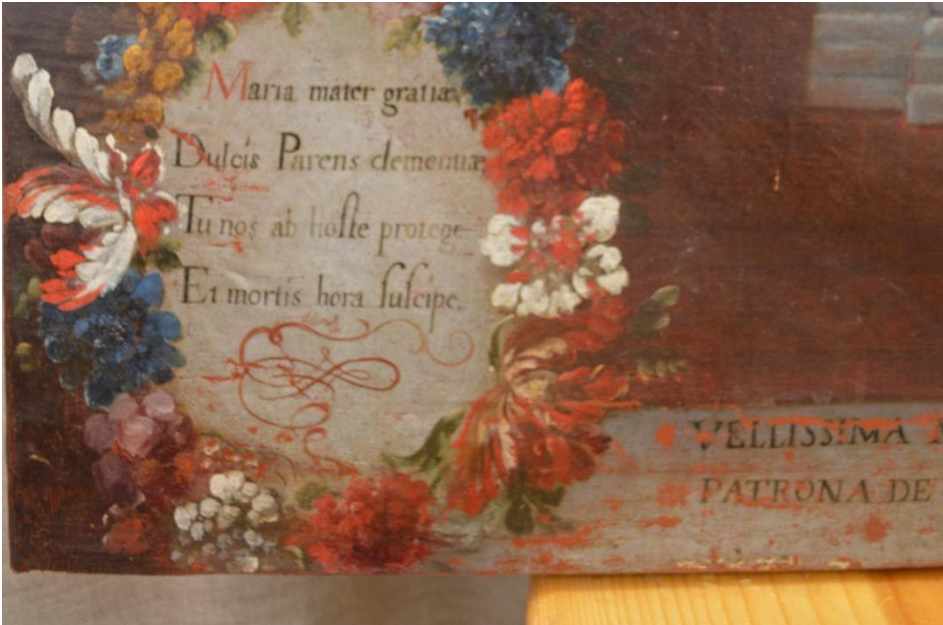 Maria mater gratiæ,
Dulcis Parens clementiæ,
Tu nos ab hoſte protege
Et mortis hora ſuſcipe.
VELLISSIMA
PATRONA DE